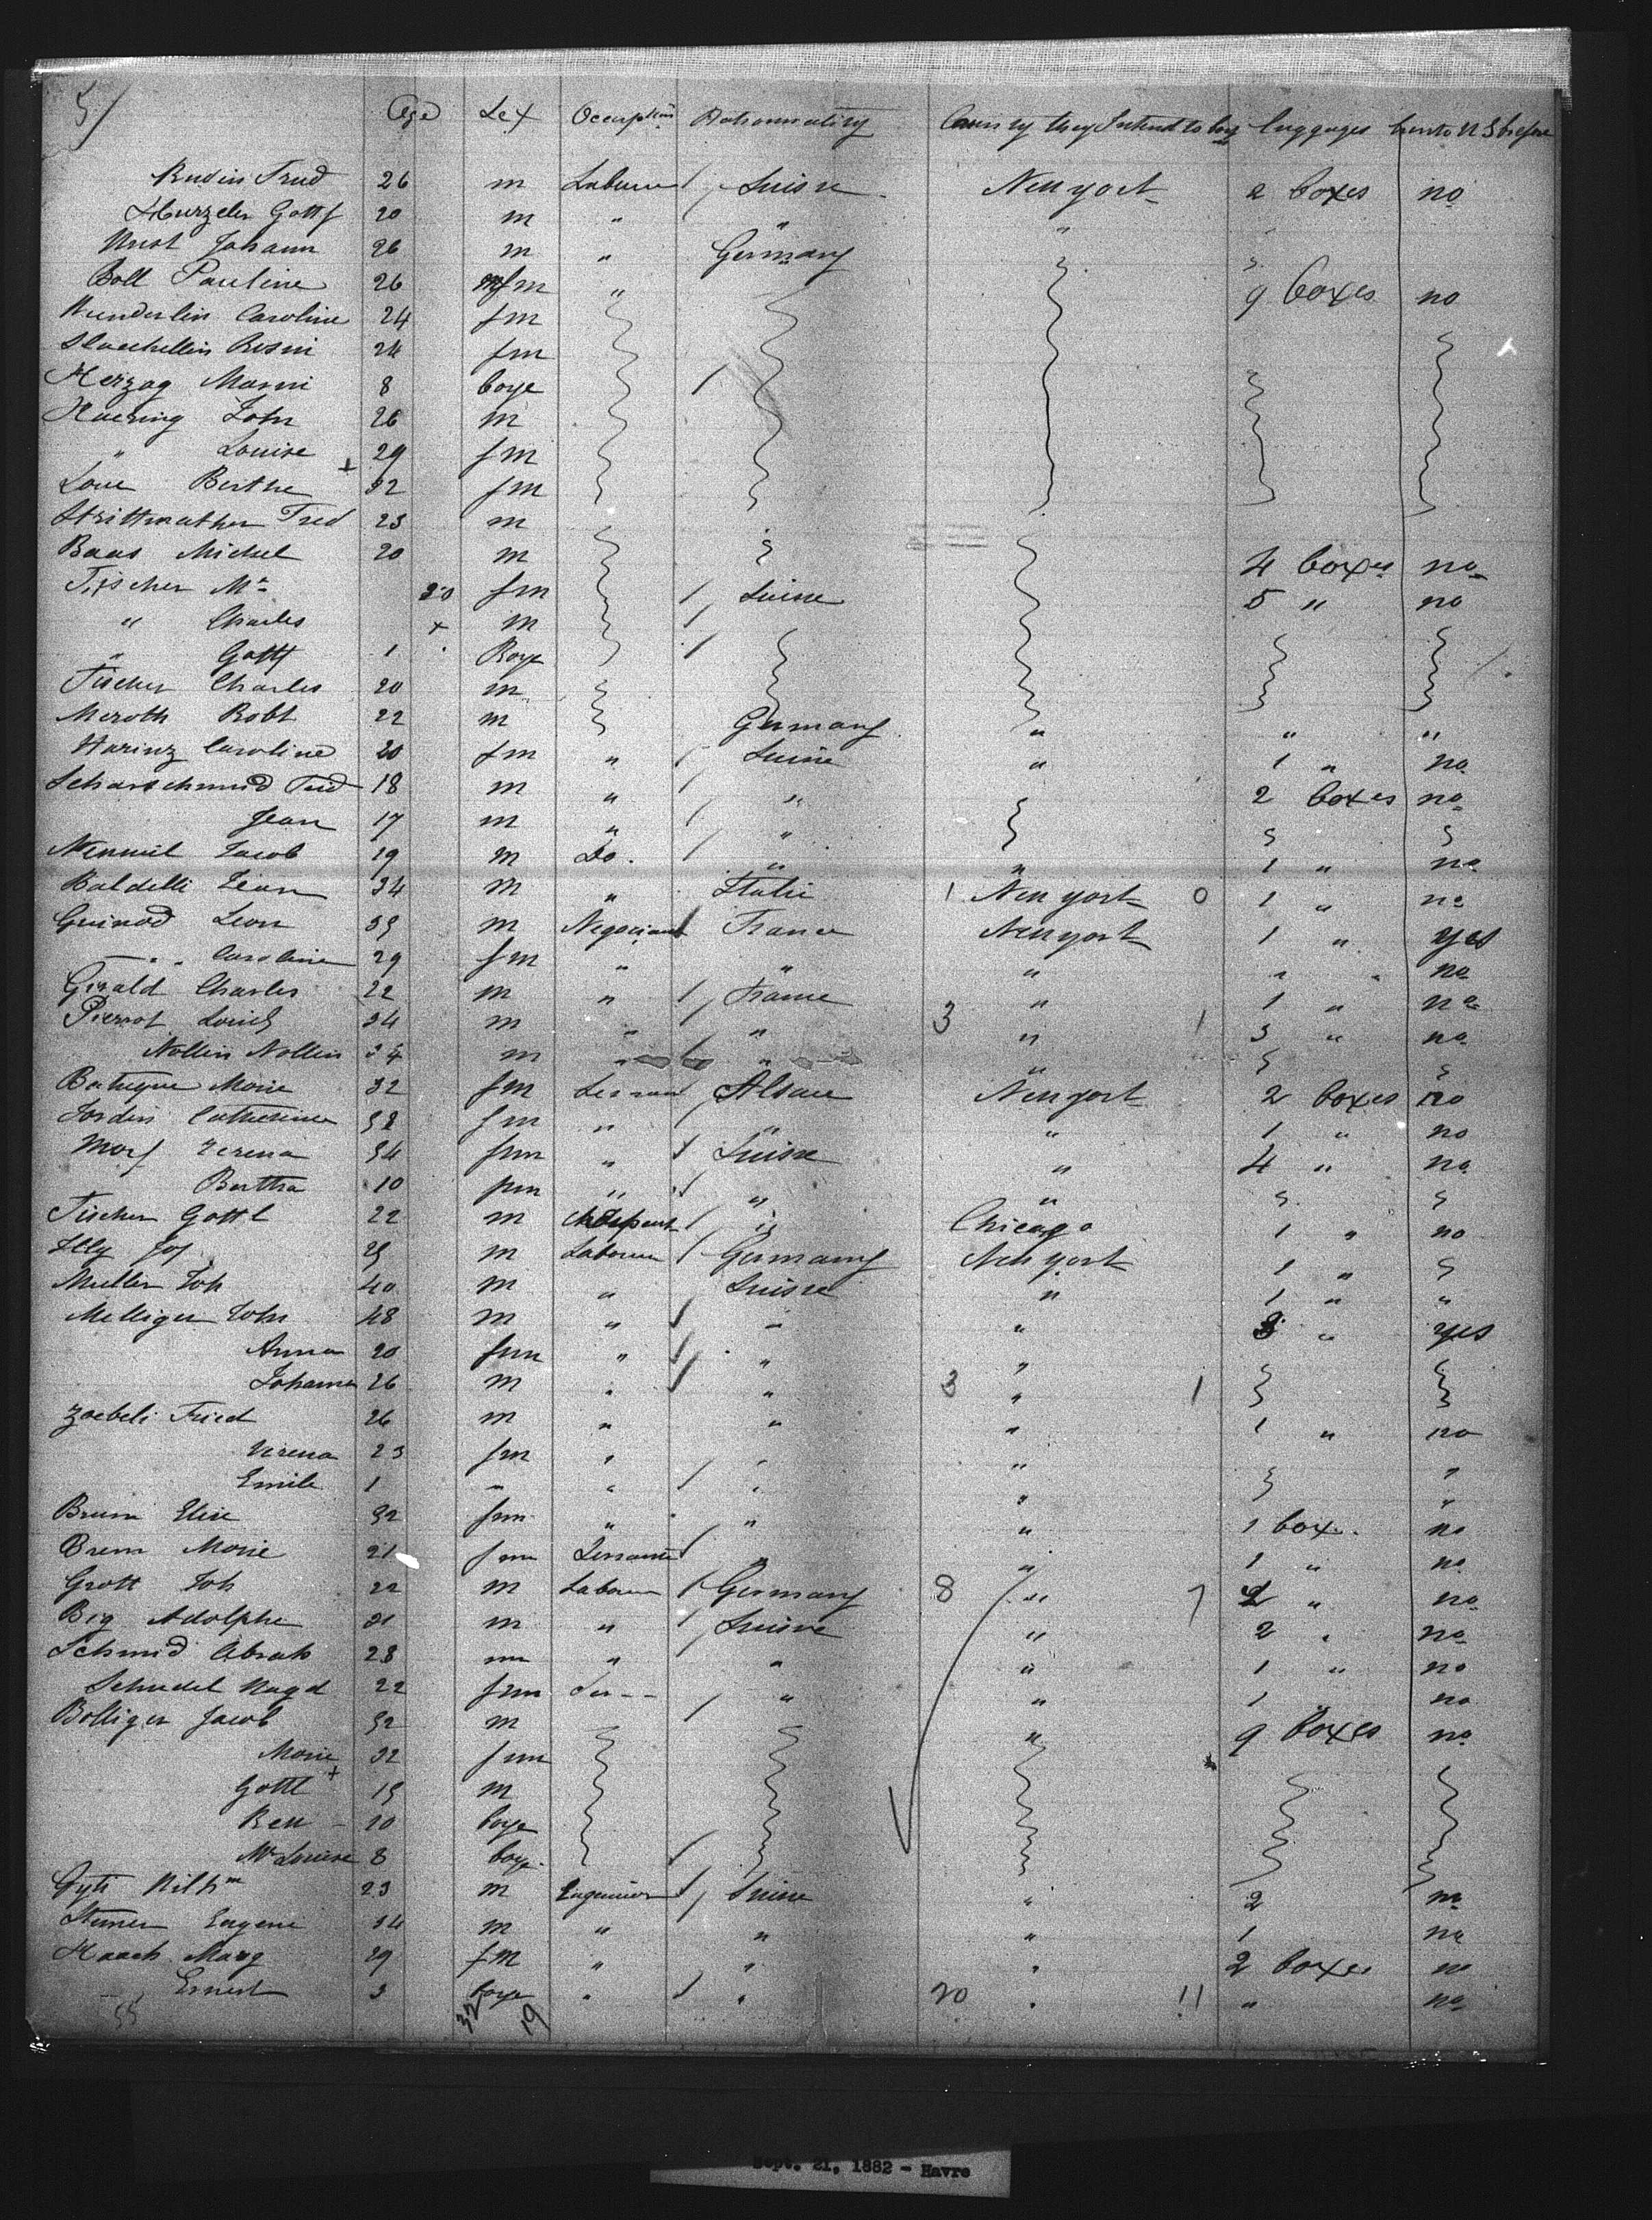 5/ Age Sex Occupation Nationality Country they Intend to luggages U S before
Rudin Fred 26 m Labourer / Suisse New york 2 boxes no
Hurzeler Gottf 20 m " " " "
Wust Johann 26 m " Germany
Boll Pauline 26 fm " 9 boxes no
Wunderlin Caroline 24 fm
Staechellin Rosni 24 fm
Herzog Marni 8 boye /
Haering John 26 m
" Louise 29 fm
Love Berthe + 32 fm
Strittmather Fred 23 m
Baas Michel 20 m 4 boxes no
Fischer Me 20 fm / Suisse 5 " no
" Charles + m /
" Gottf 1 Boye /
Fischer Charles 20 m
Meroth Robt 22 m Germany " " "
Harinz Caroline 20 fm " / Suisse " 1 " no
Scharschmid Fred 18 m " / " 2 boxes no
Jean 17 m " / "
Nenwil Jacob 19 m Do. / " " 1 " no
Baldelli Jean 34 m " Italie 1 New york 0 1 " no
Guinod Leon 35 m Negociant / France New york 1 " yes
" Caroline 29 fm " " " " " no
Girald Charles 22 m " / France " 1 " no
Pierrot Louis 34 m " / " 3 " 1 3 " no
Nollin Nollin 34 m " / " "
Marie 32 fm Alsace New york 2 boxes no
Jordin Catherine 38 fm " " " 1 " no
Morf Verena 34 fm " / Suisse " 4 " no
Bertha 10 fm " / " "
Fischer Gottl 22 m / " Chicago 1 " no
Illy Jos 25 m Labourer / Germany New york 1 "
Muller Joh 40 m " Suisse " 1 " "
Melliger John 48 m " / " " 3 " yes
Anna 20 fm " / " "
Johanna 26 m " / " 3 " 1
Zoebeli Fried 26 m " " " 1 " no
Verena 23 fm " " " "
Emile 1 " " / " " "
Brum Elise 32 fm " " " 1 box no
Brem Marie 21 fm Servante / " " 1 " no
Grott Joh 22 m Labourer / Germany 8 " 7 2 " no
Big Adolphe 21 m " / Suisse " 2 " no
Schmid Abrah 28 m " " " 1 " no
Schudel Magd 22 fm Ser-- / " " 1 no
Bolliger Jacob 32 m " 9 boxes no
Marie 32 fm
Gottl + 15 m
10 boye
Me Louise 8 boye /
Gyti Wilhm 23 m Engenieur / Suisse " 2 no
Steiner Eugene 34 m " " " 1 no
Haach Marg 29 fm " " " 2 boxes no
Ernest 3 boye " / " 20 " 11 " no
55 32 19
Sept. 21, 1882 - Havre